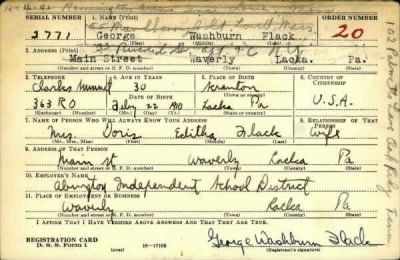 SERIAL NUMBER
1. NAME (Print)
ORDER NUMBER
2771
George Washburn Flack
20
(First) (Middle) (Last)
2. ADDRESS (Print)
Main Street Waverly Lacka. Pa.
(Number and street or R. F. D. number) (Town) (County) (State)
3. TELEPHONE
4. AGE IN YEARS
5. PLACE OF BIRTH
6. COUNTRY OF CITIZENSHIP
Clarks Summit
30
Scranton
(Town or county)
DATE OF BIRTH
363 RO
Feby 22 1910
Lacka Pa
U.S.A.
(Exchange) (Number)
(Mo.) (Day) (Yr.)
(State or country)
7. NAME OF PERSON WHO WILL ALWAYS KNOW YOUR ADDRESS
8. RELATIONSHIP OF THAT PERSON
Mrs. Doris Editha Flack Wife
(Mr., Mrs., Miss) (First) (Middle) (Last)
9. ADDRESS OF THAT PERSON
Main St Waverly Lacka Pa
(Number and street or R. F. D. number) (Town) (County) (State)
10. EMPLOYER'S NAME
Abington Independent School District
11. PLACE OF EMPLOYMENT OR BUSINESS
Waverly Lacka Pa
(Number and street or R. F. D. number) (Town) (County) (State)
I AFFIRM THAT I HAVE VERIFIED ABOVE ANSWERS AND THAT THEY ARE TRUE.
REGISTRATION CARD
D. S. S. Form 1
(over)
16—17105
George Washburn Flack
(Registrant's signature)